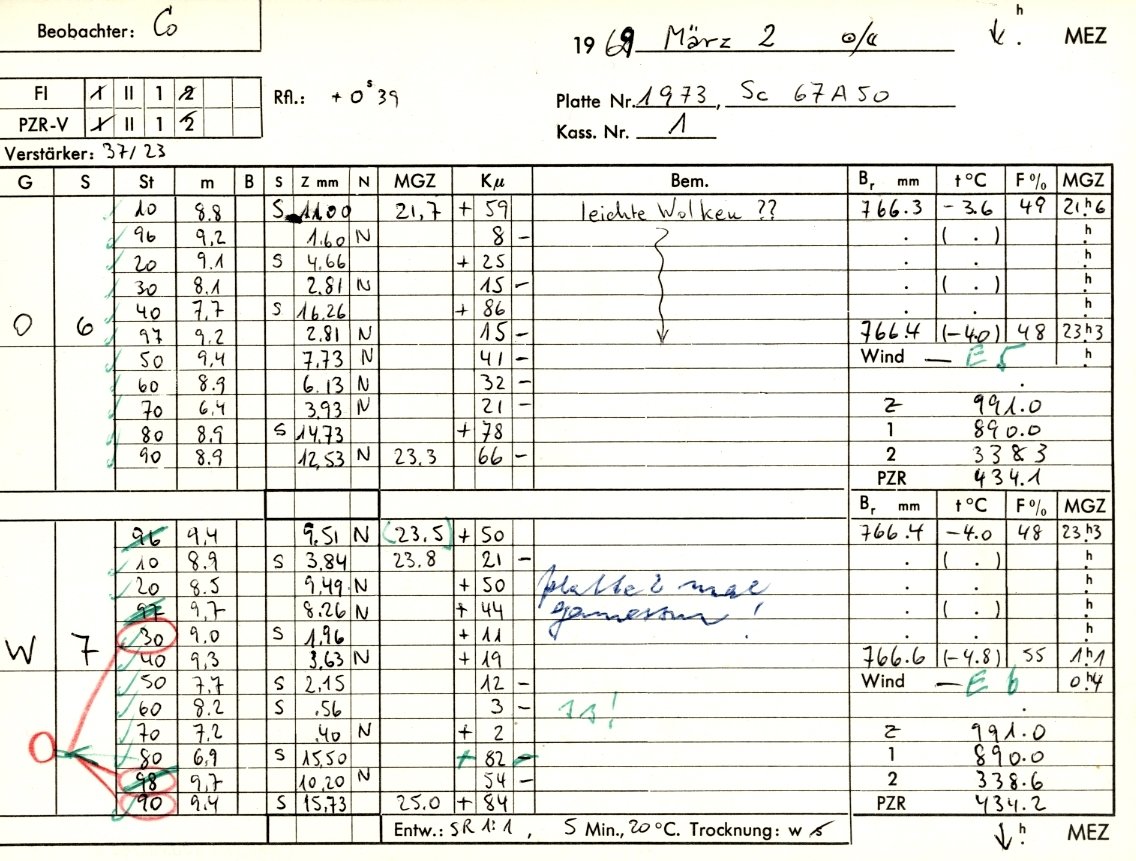 Beobachter: Co
1969 März 2 o/a h MEZ
FI I II 1 2
PZR-V I II 1 2
Rfl.: + 0ˢ39
Platte Nr. 1973, Sc 67A50
Kass. Nr. 1
Verstärker: 37/23
G S St m B S Z mm N MGZ Kµ Bem. Bᵣ mm t °C F% MGZ
10 8.8 S 11.00 21,7 + 59 leichte Wolken ?? 766.3 -3.6 49 21ʰ6
96 9,2 1.60 N 8 - . ( . ) h
20 9.1 S 4.66 + 25 . . h
30 8.1 2.81 N 15 - . ( . ) h
40 7,7 S 16.26 + 86 . . h
O 6 97 9.2 2.81 N 15 - 766.4 (-4.0) 48 23ʰ3
50 9,4 7.73 N 41 - Wind — E 5 h
60 8.9 6.13 N 32 -
70 6,4 3.93 N 21 - Z 991.0
80 8,9 S 14.73 + 78 1 890.0
90 8.9 12,53 N 23.3 66 - 2 338 3
PZR 434.1
Bᵣ mm t °C F% MGZ
96 9,4 9.51 N (23.5) + 50 766.4 -4.0 48 23ʰ3
10 8.9 S 3,84 23.8 21 - . ( . ) h
20 8.5 9,49 N + 50 Platte 2 mal . . h
97 9,7 8.26 N + 44 gemessen ! . ( . ) h
30 9.0 S 1,96 + 11 . . h
W 7 40 9,3 3,63 N + 19 766.6 (-4.8) 55 1ʰ1
50 7.7 S 2,15 12 - Wind — E 6 0ʰ4
60 8.2 S .56 3 -
70 7.2 .40 N + 2 Z 991.0
80 6,9 S 15,50 + 82 - 1 890.0
98 9,7 10,20 N 54 - 2 338.6
90 9.4 S 15,73 25.0 + 84 PZR 434.2
O
Entw.: SR 1:1, 5 Min., 20 °C. Trocknung: w s h MEZ